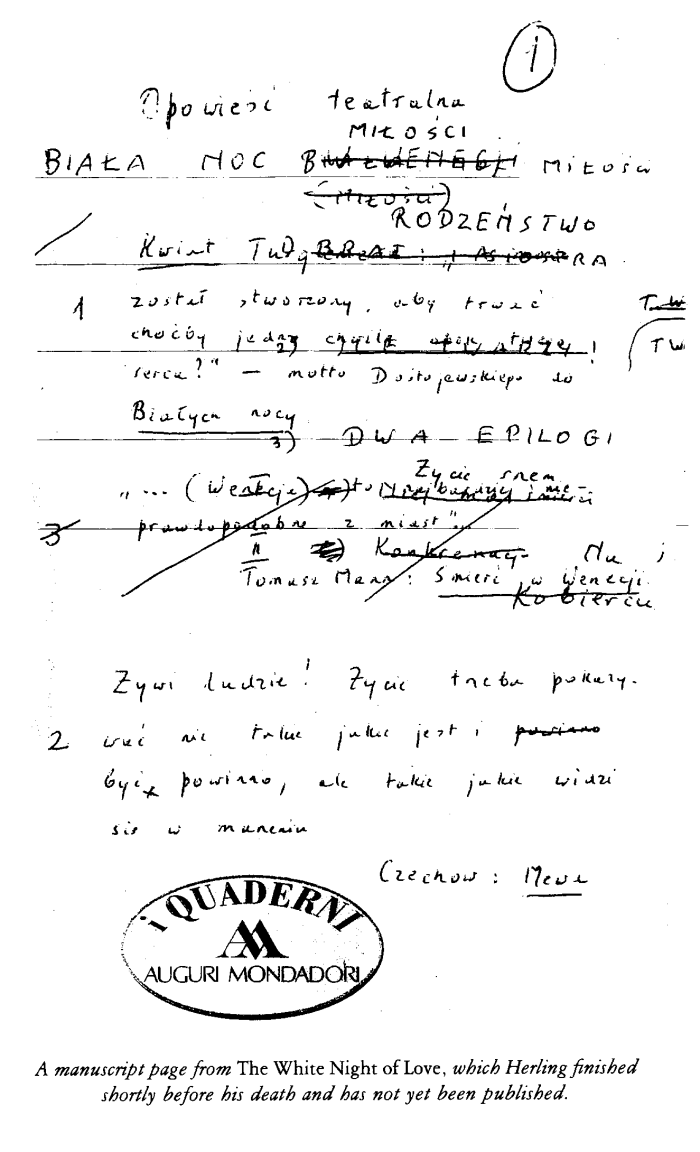 1
Opowieść teatralna
MIŁOŚCI
BIAŁA NOC MIŁOŚCI
(MIŁOŚCI)
RODZEŃSTWO
Kwiat Tu
1 został stworzony, aby trwać
choćby jedną chwilę !
serca?" — motto Dostojewskiego do
Białych nocy
3) DWA EPILOGI
Życie snem
„... (Wenecja) to
3 prawdopodobne z miast"..
Tomasz Mann: Śmierć w Wenecji
Kobiercu
Żywi ludzie! Życie trzeba pokazy-
2 wać nie takie jakie jest i powinno
być powinno, ale takie jakie widzi
się w marzeniu
Czechow: Mewa
i QUADERNI
AUGURI MONDADORI
A manuscript page from The White Night of Love, which Herling finished
shortly before his death and has not yet been published.